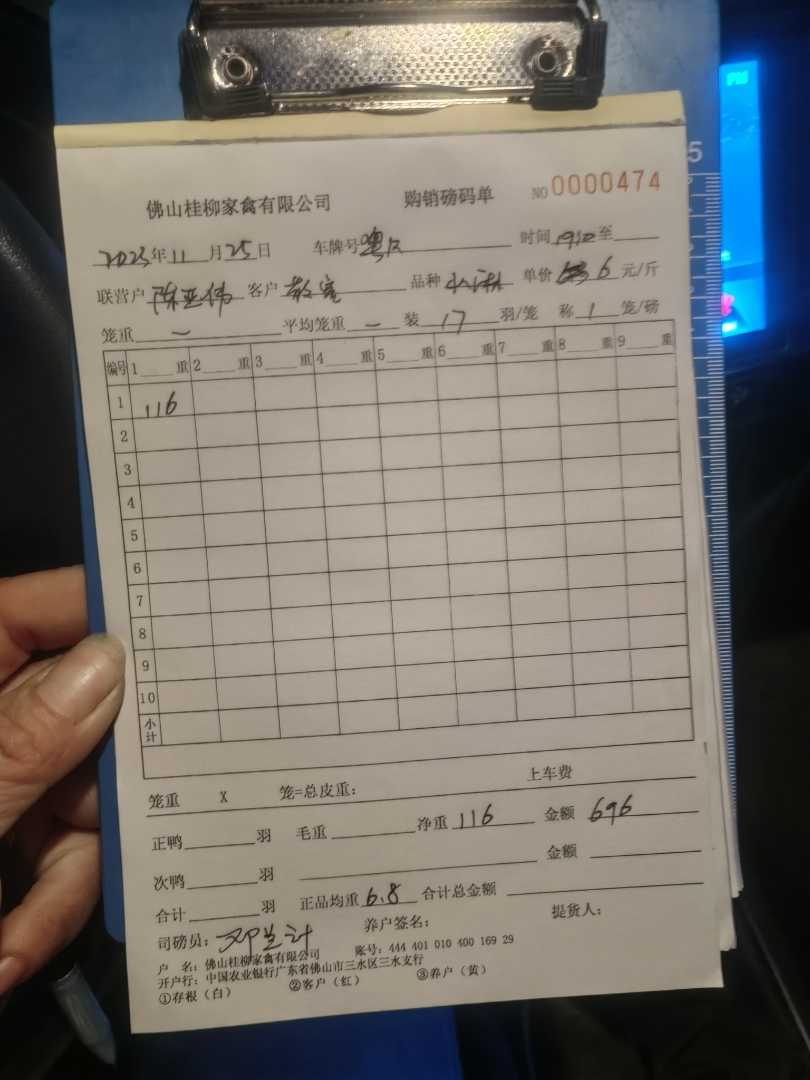 5
佛山桂柳家禽有限公司 购销磅码单 NO 0000474
2023年 11 月 25 日 车牌号 粤 时间 至
联营户 陈亚伟 客户 散客 品种 单价 6 元/斤
笼重 — 平均笼重 — 装 17 羽/笼 称 1 笼/磅
编号 1 重 2 重 3 重 4 重 5 重 6 重 7 重 8 重 9 重
1 116
2
3
4
5
6
7
8
9
10
小计
笼重 X 笼=总皮重: 上车费
正鸭 羽 毛重 净重 116 金额 696
次鸭 羽 金额
合计 羽 正品均重 6.8 合计总金额
司磅员: 养户签名: 提货人:
户 名: 佛山桂柳家禽有限公司 账号: 444 401 010 400 169 29
开户行: 中国农业银行广东省佛山市三水区三水支行
①存根(白) ②客户(红) ③养户(黄)